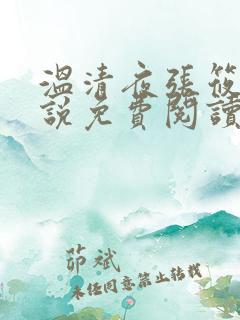 溫清夜張筱
說免費閱讀
茆斌
未经同意禁止转载